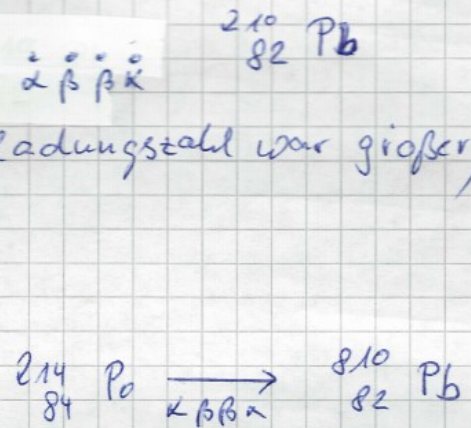 ²¹⁰₈₂ Pb
α β β α
Ladungszahl war größer,
²¹⁴₈₄ Po ⟶ ⁸¹⁰₈₂ Pb
α β β α